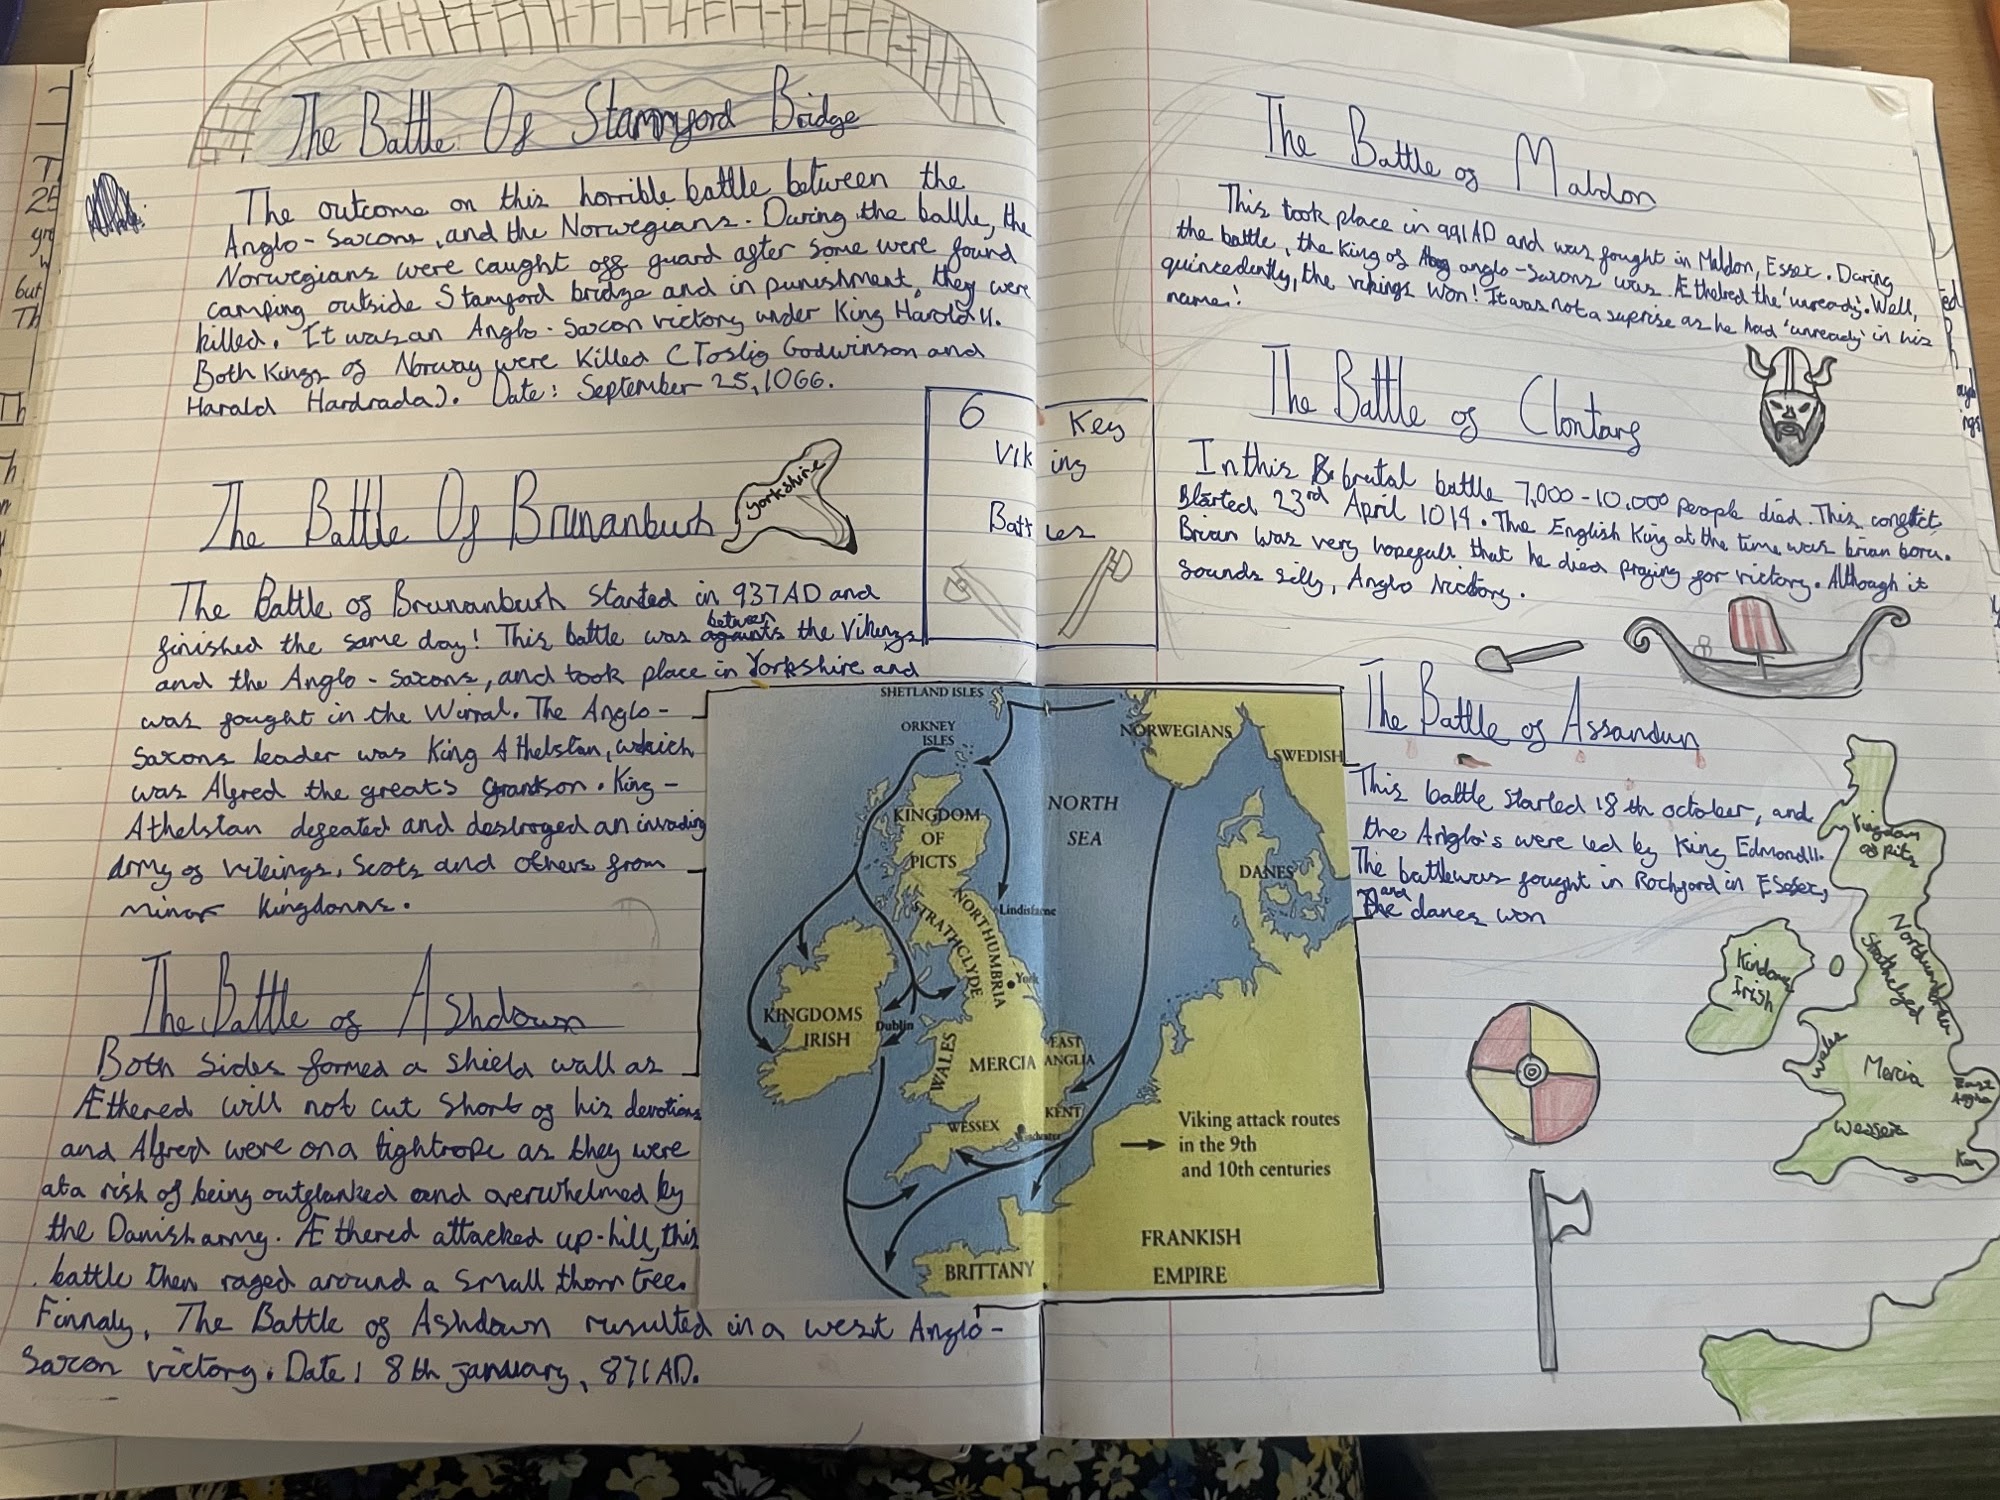 The Battle Of Stamnford Bridge
The outcome on this horrible battle between the
Anglo-Saxons, and the Norwegians. During the battle, the
Norwegians were caught off guard after some were found
camping outside Stamford bridge and in punishment, they were
killed. It was an Anglo-Saxon victory under King Harold II.
Both Kings of Norway were Killed (Tostig Godwinson and
Harald Hardrada). Date: September 25, 1066.
6 Key
Viking
Battles
The Battle Of Brunanburh
Yorkshire
The Battle of Brunanburh started in 937AD and
finished the same day! This battle was between the Vikings
and the Anglo-Saxons, and took place in Yorkshire and
was fought in the Wirral. The Anglo-
Saxons leader was King Athelstan, which
was Alfred the great's Grandson. King-
Athelstan defeated and destroyed an invading
army of vikings, Scots and others from
minor Kingdoms.
The Battle of Ashdown
Both sides formed a shield wall as
Æthered will not cut short of his devotions
and Alfred were on a tightrope as they were
at a risk of being outflanked and overwhelmed by
the Danish army. Æthered attacked up-hill, this
battle then raged around a small thorn tree.
Finnaly, The Battle of Ashdown rusulted in a west Anglo-
Saxon victory. Date: 8th january, 871AD.
The Battle of Maldon
This took place in 991AD and was fought in Maldon, Essex. During
the battle, the King of anglo-saxons was Æthelred the 'unready'. Well,
quincedently, the vikings won! It was not a suprise as he had 'unready' in his
name!
The Battle of Clontarf
In this brutal battle 7,000-10,000 people died. This conflict
Started 23rd April 1014. The English King at the time was brian boru.
Brian was very hopefull that he died praying for victory. Although it
sounds silly, Anglo Victory.
The Battle of Assandun
This battle started 18th october, and
the Anglo's were led by King Edmond II.
The battle was fought in Rochford in Essex,
and danes won
SHETLAND ISLES
ORKNEY
ISLES
NORWEGIANS
SWEDISH
KINGDOM
OF
PICTS
NORTH
SEA
DANES
Lindisfarne
STRATHCLYDE
NORTHUMBRIA
York
KINGDOMS
IRISH
Dublin
WALES
MERCIA
EAST
ANGLIA
KENT
WESSEX
Viking attack routes
in the 9th
and 10th centuries
FRANKISH
EMPIRE
BRITTANY
Kingdom
of Pits
Northumber
Strathclyed
Kindoms
Irish
Wales
Mercia
East
Anglia
Wessex
Ken